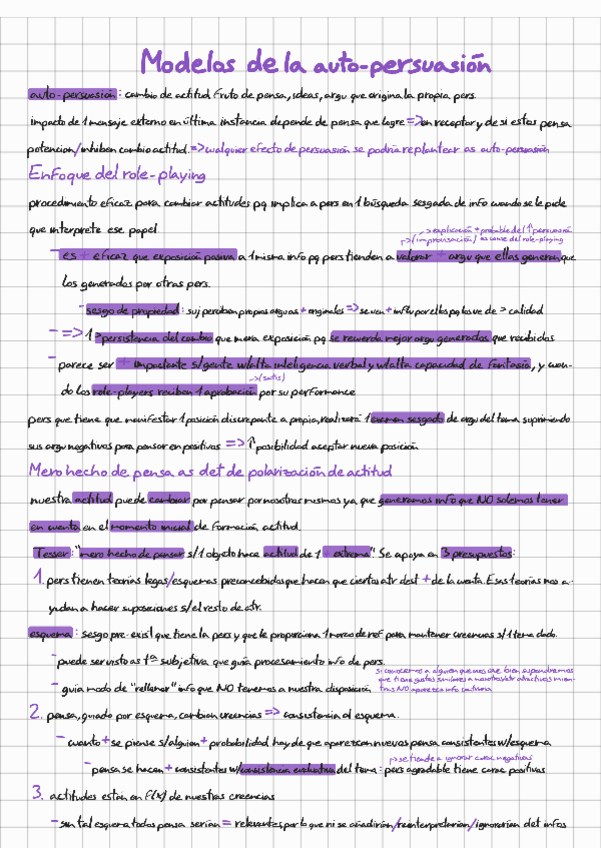 Modelos de la auto-persuasión
auto-persuasión: cambio de actitud fruto de pensa, ideas, argu que origina la propia pers.
impacto de 1 mensaje externo en última instancia depende de pensa que logre => en receptor y de si estos pensa
potencian/inhiben cambio actitud. => cualquier efecto de persuasión se podría replantear as auto-persuasión
Enfoque del role-playing
procedimiento eficaz para cambiar actitudes pq implica a pers en 1 búsqueda sesgada de info cuando se le pide
que interprete ese papel.
-> explicación + probable del ↑ persuasión
-> (improvisación) as cause del role-playing
- es + eficaz que exposición pasiva a 1 misma info pq pers tienden a valorar + argu que ellas generan que
los generados por otras pers.
- sesgo de propiedad: suj perciben propios argus + originales => se ven + influ por ellos pq los ve de > calidad
- => 1 > persistencia del cambio que mera exposición pq se recuerda mejor argu generados que recibidos
- parece ser + impactante s/gente w/alta inteligencia verbal y w/alta capacidad de fantasía, y cuan-
-> (satis)
do los role-players reciben 1 aprobación por su performance
pers que tiene que manifestar 1 posición discrepante a propia, realizará 1 examen sesgado de argu del tema suprimiendo
sus argu negativos para pensar en positivos => ↑ posibilidad aceptar nueva posición
Mero hecho de pensa as det de polarización de actitud
nuestra actitud puede cambiar por pensar por nosotros mismos ya que generamos info que NO solemos tener
en cuenta en el momento inicial de formación actitud.
Tesser: "mero hecho de pensar s/1 objeto hace actitud de 1 + extrema" Se apoya en 3 presupuestos:
1. pers tienen teorías legas/esquemas preconcebidos que hacen que ciertos atr dest + de la cuenta. Esas teorías nos a-
yudan a hacer suposiciones s/el resto de atr.
esquema: sesgo pre-exist que tiene la pers y que le proporciona 1 marco de ref para mantener creencias s/1 tema dado.
- puede ser visto as 1ª subjetiva que guía procesamiento info de pers.
si conocemos a alguien que nos cae bien, supondremos
que tiene gustos similares a nosotros/atr atractivos mien-
tras NO aparezca info contraria
- guía modo de "rellenar" info que NO tenemos a nuestra disposición
2. pensa, guiado por esquema, cambian creencias => consistencia al esquema.
- cuanto + se piense s/alguien + probabilidad hay de que aparezcan nuevos pensa consistentes w/esquema
-> se tiende a ignorar carac negativas
- pensa se hacen + consistentes w/consistencia evaluativa del tema: pers agradable tiene carac positivas
3. actitudes están en f(x) de nuestras creencias
- sin tal esquema todos pensa serían = relevantes por lo que ni se añadirían/reinterpretarían/ignorarían det infos